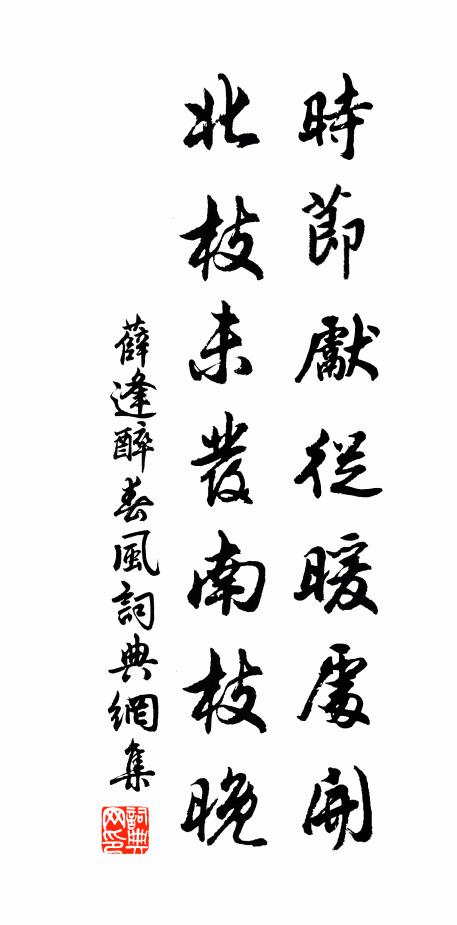 時節獻從暖處開
北枝未發南枝晚
薛逢醉春風詞典網集
詞典
网印